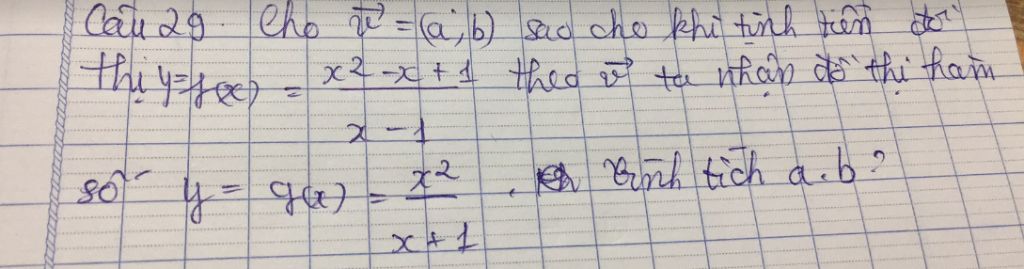 Câu 29. Cho v = (a; b) sao cho khi tịnh tiến đồ
thị y = f(x) = x² - x + 1 / x - 1 theo v ta nhận đồ thị hàm
số y = g(x) = x² / x + 1 . Tính tích a.b?